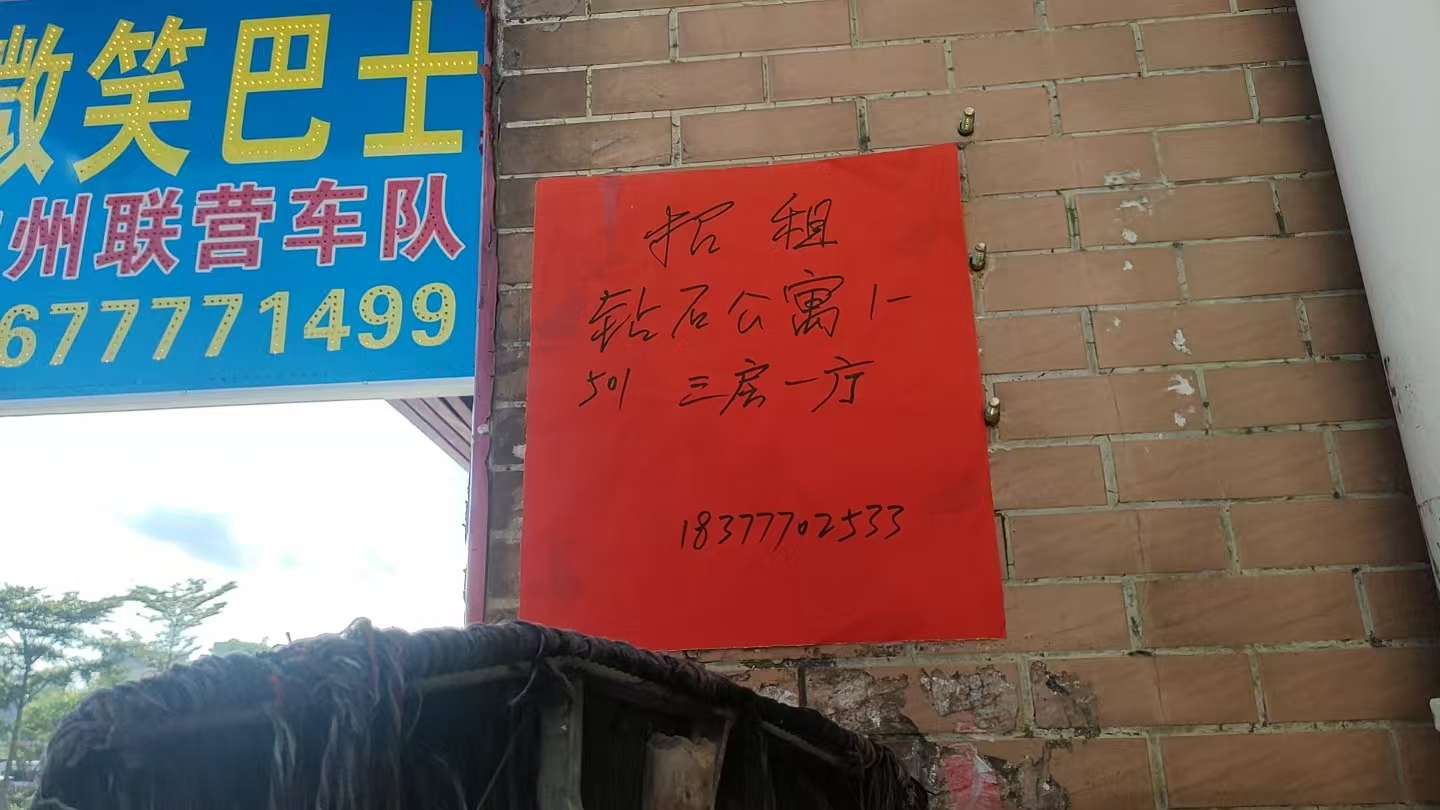 微笑巴士
州联营车队
677771499
招租
钻石公寓1-
501 三房一厅
18377702533